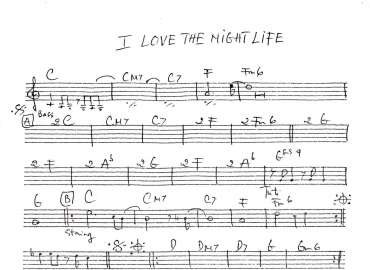 I LOVE THE NIGHT LIFE
C CM7 C7 F Fm6
Bass
A 2C CM7 C7 2F 2Fm6 2G
2F 2Ab 2G 2F 2Ab G
G B C CM7 C7 F Fm6
String
D DM7 D7 G Gm6